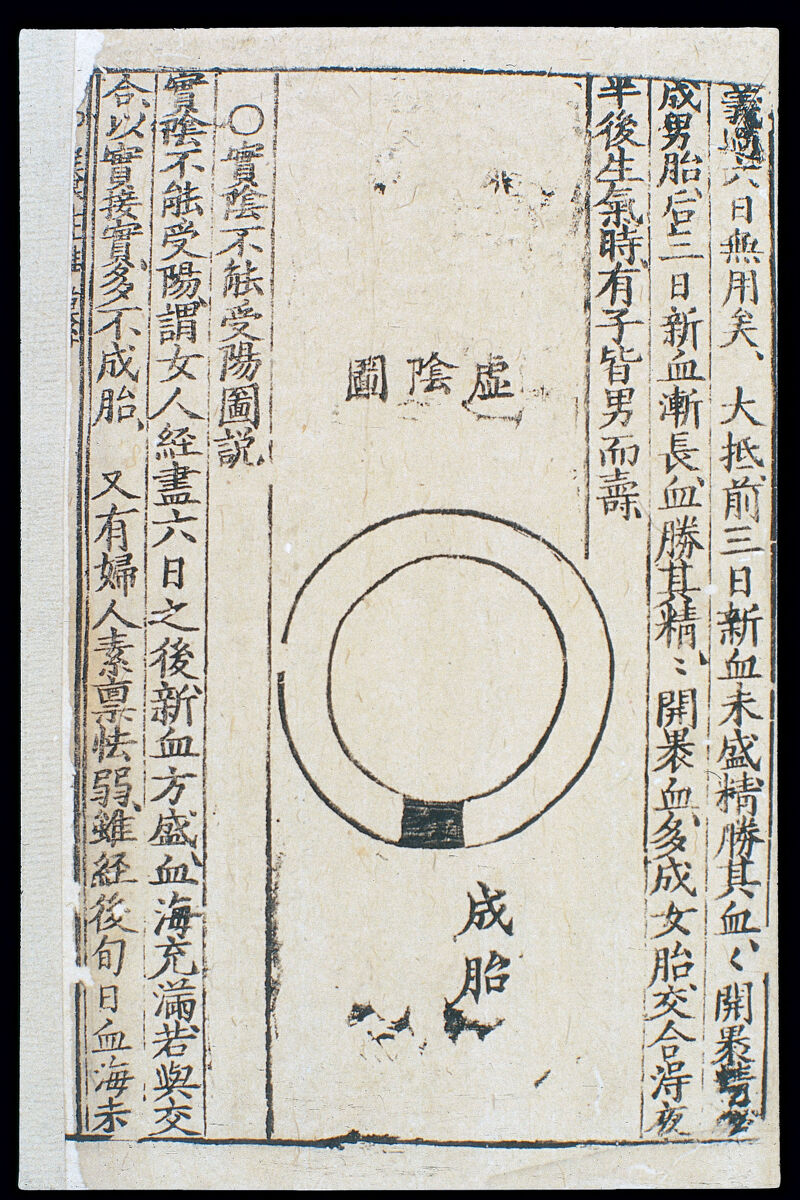 六日無用矣、大抵前三日新血未盛、精勝其血、〱開裹精
成男胎、后三日新血漸長、血勝其精、〻開裹血、多成女胎、交合浔夜
半後生氣時、有子皆男而壽、
虛陰圖
成胎
○實陰不能受陽圖説
實陰不能受陽、謂女人経盡六日之後、新血方盛、血海充滿、若與交
合、以實接實、多不成胎、又有婦人素禀怯弱、雖経後旬日血海未